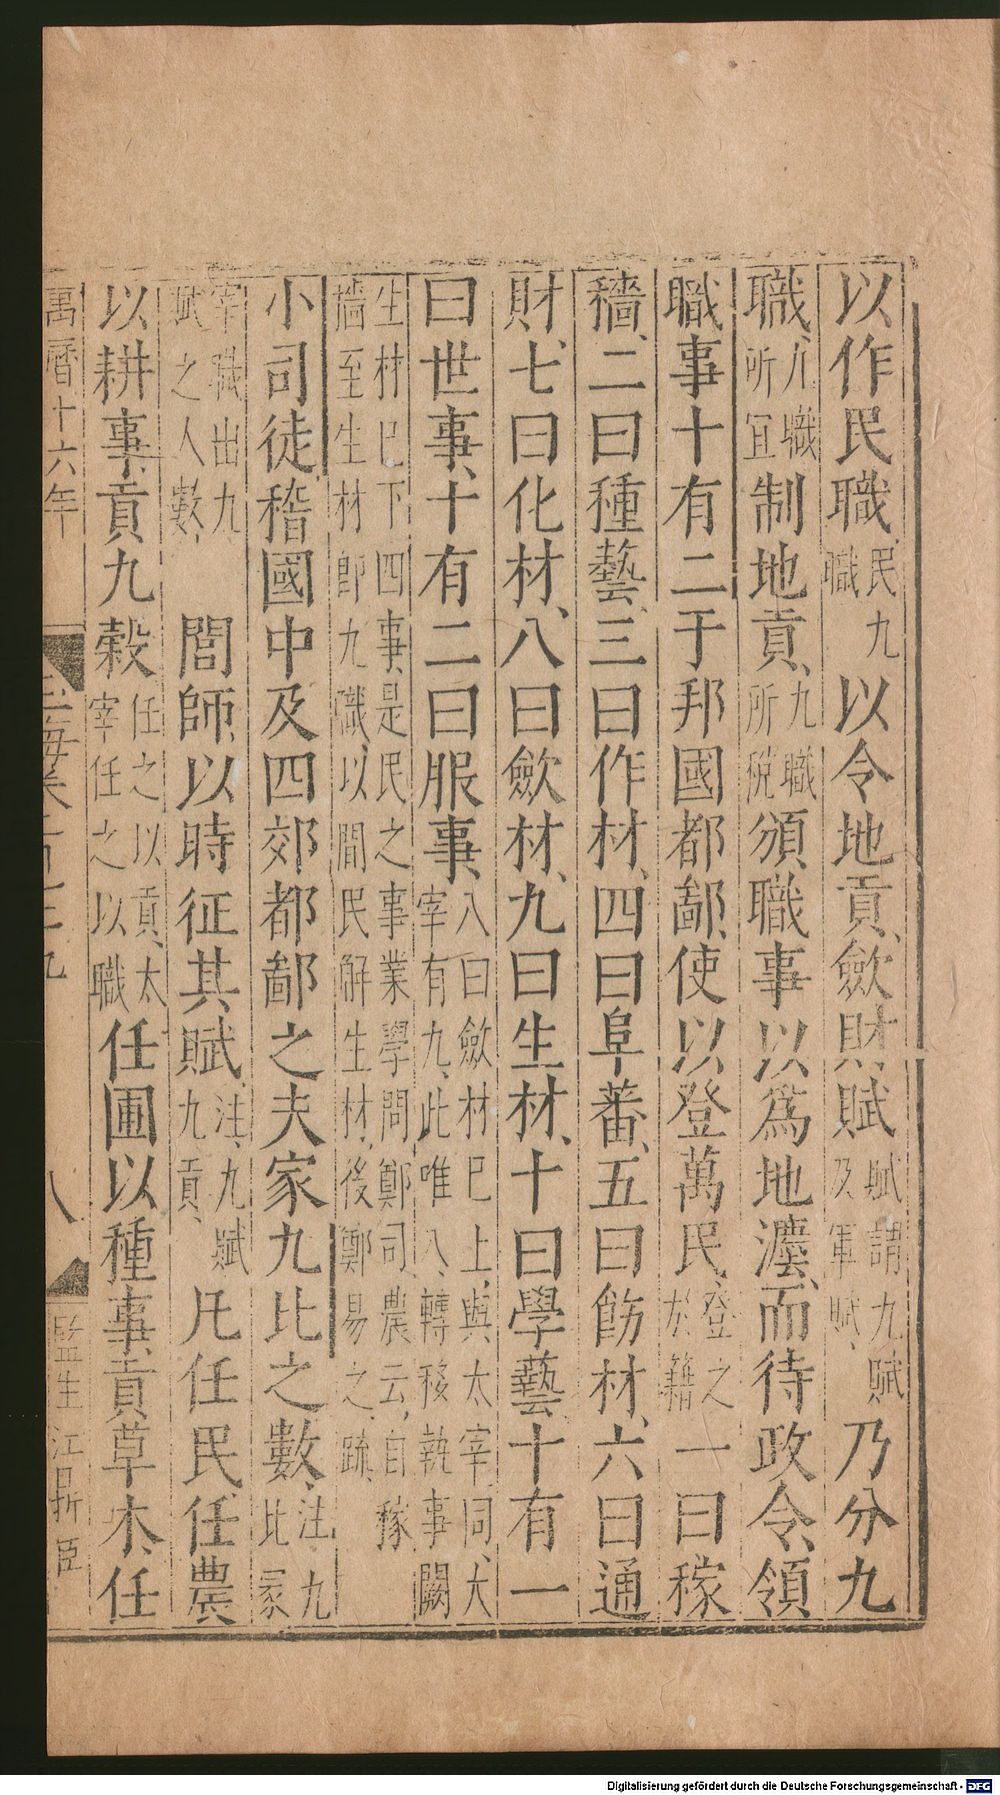 以作民職民九職以令地貢斂財賦賦謂九賦及軍賦乃分九
職九職所宜制地貢九職所稅頒職事以為地灋而待政令領
職事十有二于邦國都鄙使以登萬民登之於籍一曰稼
穡二曰種藝三曰作材四曰阜蕃五曰飭材六曰通
財七曰化材八曰斂材九曰生材十曰學藝十有一
曰世事十有二曰服事八曰斂材巳上與太宰同大宰有九此唯八轉移執事闕
生材巳下四事是民之事業學問鄭司農云自稼穡至生材即九職以閒民解生材後鄭易之疏
小司徒稽國中及四郊都鄙之夫家九比之數注九比冢
宰職出九賦之人數閭師以時征其賦注九賦九貢凡任民任農
以耕事貢九穀任之以貢太宰任之以職任圃以種事貢草木任
萬曆十六年
玉海卷
八
監生江
臣
Digitalisierung gefördert durch die Deutsche Forschungsgemeinschaft - DFG